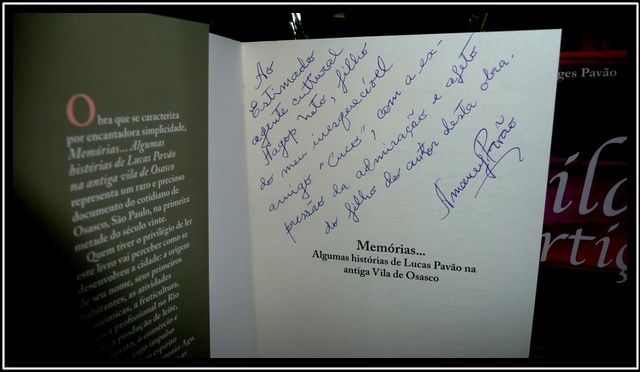 Obra que se caracteriza
por encantadora simplicidade,
Memórias... Algumas
histórias de Lucas Pavão
na antiga vila de Osasco
representa um raro e precioso
documento do cotidiano de
Osasco, São Paulo, na primeira
metade do século vinte.
Quem tiver o privilégio de ler
este livro vai perceber como se
desenvolveu a cidade: a origem
de seu nome, seus primeiros
habitantes, as atividades
econômicas, a fruticultura,
a profissional no Rio
à produção de leite,
o comércio e
cujo impulso
espírito
Ao
Estimado
agente cultural
Hagop Neto, filho
do meu inesquecível
amigo "Cuco", com a ex-
pressão da admiração e afeto
do filho do autor desta obra.
Amaury Pavão
Memórias...
Algumas histórias de Lucas Pavão na
antiga Vila de Osasco
ges Pavão
ila
rtig